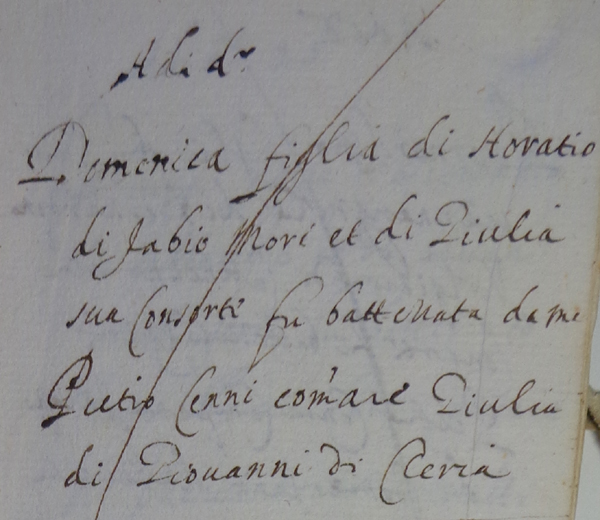 A di d.º
Domenica figlia di Horatio
di Fabio Mori et di Giulia
sua Consorte fu battezzata da me
Pietro Cenni comare Giulia
di Giovanni di